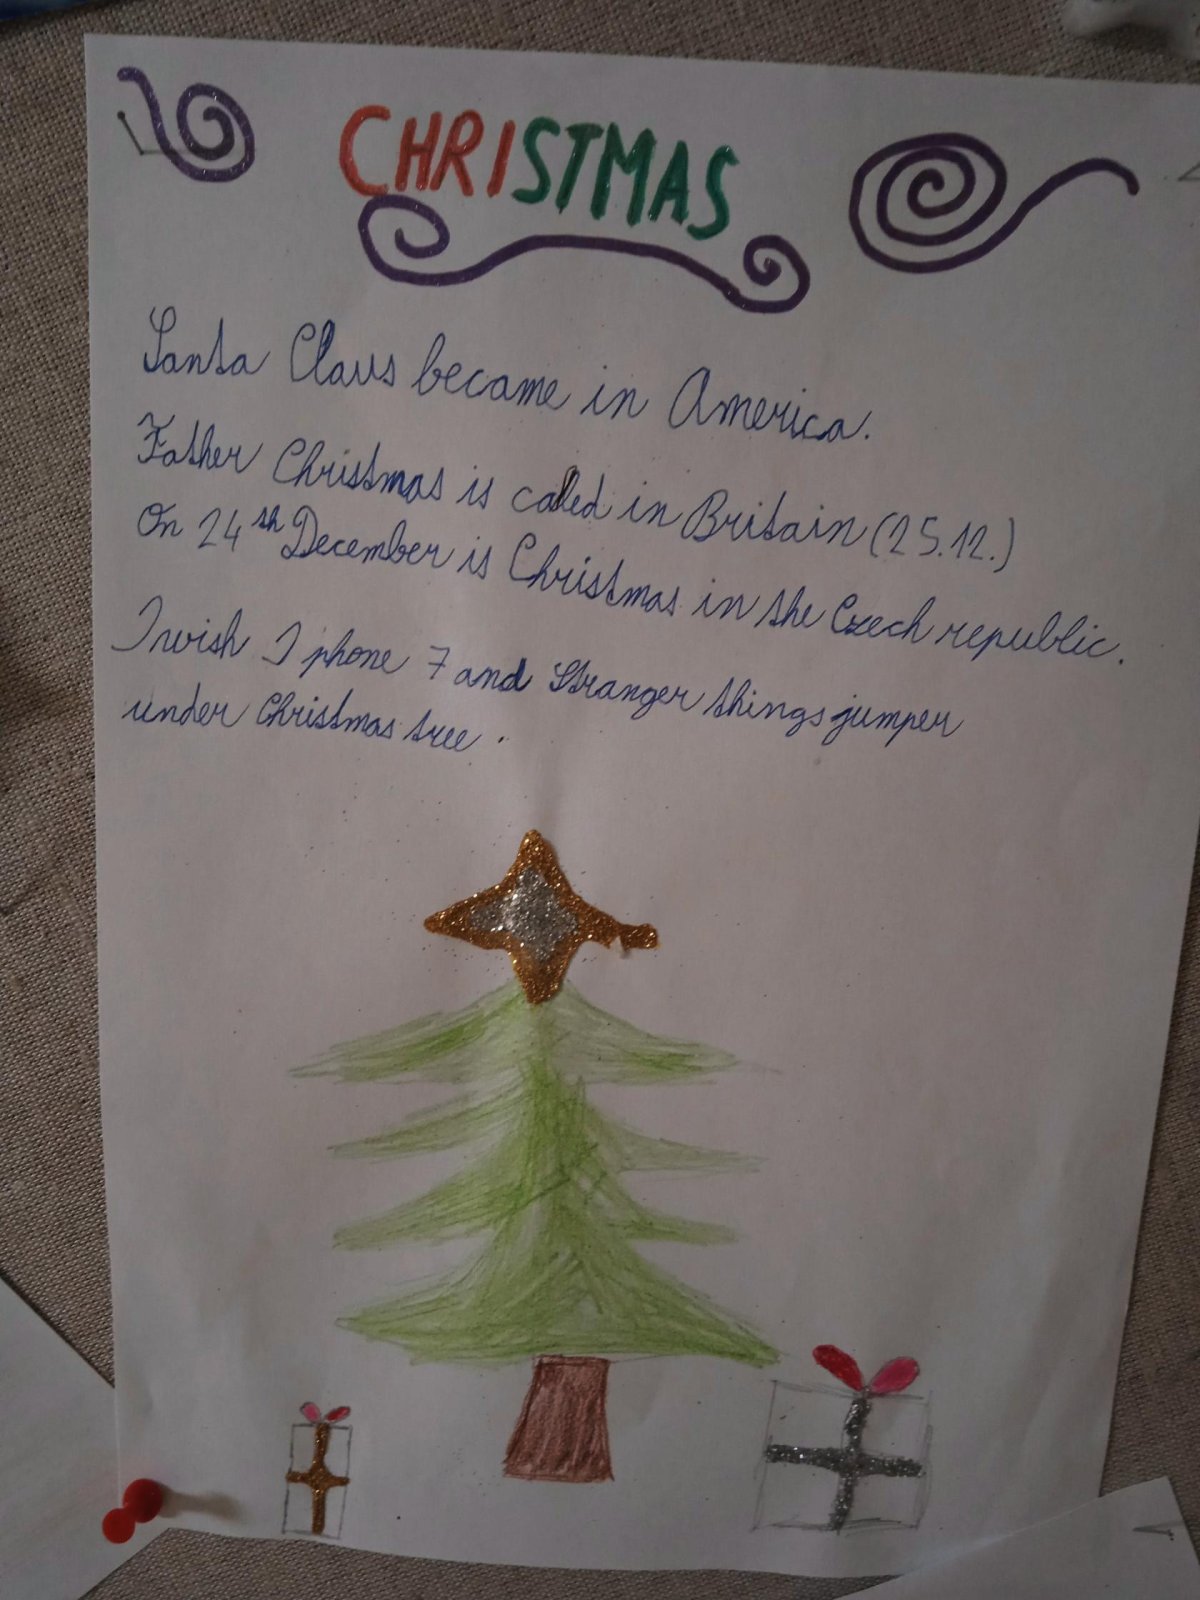 CHRISTMAS
Santa Claus became in America.
Father Christmas is called in Britain (25.12.)
On 24th December is Christmas in the Czech republic.
I wish I phone 7 and Stranger things jumper
under Christmas tree.